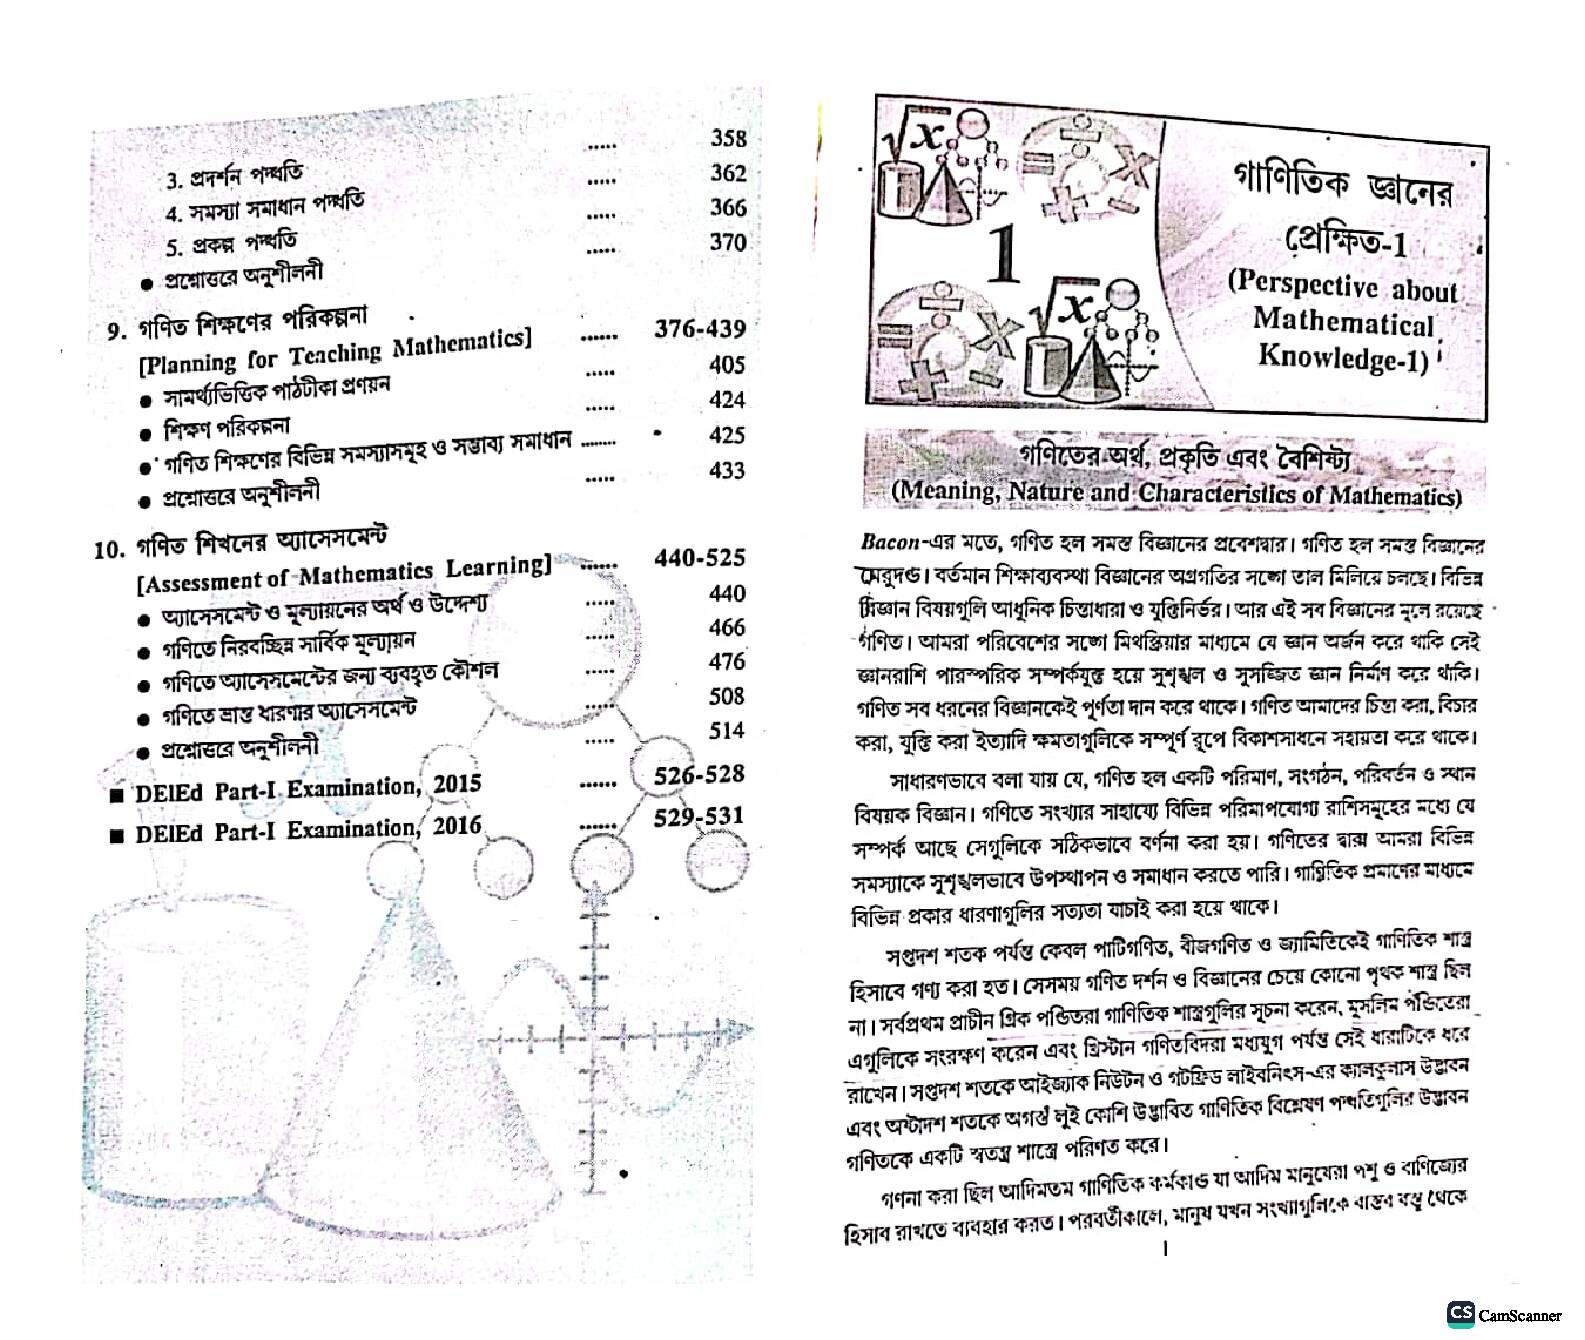 ..... 358
3. প্রদর্শন পদ্ধতি ..... 362
4. সমস্যা সমাধান পদ্ধতি ..... 366
5. প্রকল্প পদ্ধতি ..... 370
● প্রশ্নোত্তরে অনুশীলনী
9. গণিত শিক্ষণের পরিকল্পনা
[Planning for Teaching Mathematics] ...... 376-439
● সামর্থ্যভিত্তিক পাঠটীকা প্রণয়ন ..... 405
● শিক্ষণ পরিকল্পনা ..... 424
● গণিত শিক্ষণের বিভিন্ন সমস্যাসমূহ ও সম্ভাব্য সমাধান ........ 425
● প্রশ্নোত্তরে অনুশীলনী ..... 433
10. গণিত শিখনের অ্যাসেসমেন্ট
[Assessment of Mathematics Learning] ...... 440-525
● অ্যাসেসমেন্ট ও মূল্যায়নের অর্থ ও উদ্দেশ্য ..... 440
● গণিতে নিরবচ্ছিন্ন সার্বিক মূল্যায়ন ..... 466
● গণিতে অ্যাসেসমেন্টের জন্য ব্যবহৃত কৌশল ..... 476
● গণিতে ভ্রান্ত ধারণার অ্যাসেসমেন্ট ..... 508
● প্রশ্নোত্তরে অনুশীলনী ..... 514
■ DElEd Part-I Examination, 2015 ...... 526-528
■ DElEd Part-I Examination, 2016 ...... 529-531
1
গাণিতিক জ্ঞানের
প্রেক্ষিত-1
(Perspective about
Mathematical
Knowledge-1)
গণিতের অর্থ, প্রকৃতি এবং বৈশিষ্ট্য
(Meaning, Nature and Characteristics of Mathematics)
Bacon-এর মতে, গণিত হল সমস্ত বিজ্ঞানের প্রবেশদ্বার। গণিত হল সমস্ত বিজ্ঞানের
মেরুদণ্ড। বর্তমান শিক্ষাব্যবস্থা বিজ্ঞানের অগ্রগতির সঙ্গে তাল মিলিয়ে চলছে। বিভিন্ন
বিজ্ঞান বিষয়গুলি আধুনিক চিন্তাধারা ও যুক্তিনির্ভর। আর এই সব বিজ্ঞানের মূলে রয়েছে
গণিত। আমরা পরিবেশের সঙ্গে মিথস্ক্রিয়ার মাধ্যমে যে জ্ঞান অর্জন করে থাকি সেই
জ্ঞানরাশি পারস্পরিক সম্পর্কযুক্ত হয়ে সুশৃঙ্খল ও সুসজ্জিত জ্ঞান নির্মাণ করে থাকি।
গণিত সব ধরনের বিজ্ঞানকেই পূর্ণতা দান করে থাকে। গণিত আমাদের চিন্তা করা, বিচার
করা, যুক্তি করা ইত্যাদি ক্ষমতাগুলিকে সম্পূর্ণ রূপে বিকাশসাধনে সহায়তা করে থাকে।
সাধারণভাবে বলা যায় যে, গণিত হল একটি পরিমাণ, সংগঠন, পরিবর্তন ও স্থান
বিষয়ক বিজ্ঞান। গণিতে সংখ্যার সাহায্যে বিভিন্ন পরিমাপযোগ্য রাশিসমূহের মধ্যে যে
সম্পর্ক আছে সেগুলিকে সঠিকভাবে বর্ণনা করা হয়। গণিতের দ্বারা আমরা বিভিন্ন
সমস্যাকে সুশৃঙ্খলভাবে উপস্থাপন ও সমাধান করতে পারি। গাণিতিক প্রমাণের মাধ্যমে
বিভিন্ন প্রকার ধারণাগুলির সত্যতা যাচাই করা হয়ে থাকে।
সপ্তদশ শতক পর্যন্ত কেবল পাটিগণিত, বীজগণিত ও জ্যামিতিকেই গাণিতিক শাস্ত্র
হিসাবে গণ্য করা হত। সেসময় গণিত দর্শন ও বিজ্ঞানের চেয়ে কোনো পৃথক শাস্ত্র ছিল
না। সর্বপ্রথম প্রাচীন গ্রিক পণ্ডিতরা গাণিতিক শাস্ত্রগুলির সূচনা করেন, মুসলিম পণ্ডিতেরা
এগুলিকে সংরক্ষণ করেন এবং খ্রিস্টান গণিতবিদরা মধ্যযুগ পর্যন্ত সেই ধারাটিকে ধরে
রাখেন। সপ্তদশ শতকে আইজ্যাক নিউটন ও গটফ্রিড লাইবনিৎস-এর ক্যালকুলাস উদ্ভাবন
এবং অষ্টাদশ শতকে অগস্ত লুই কোশি উদ্ভাবিত গাণিতিক বিশ্লেষণ পদ্ধতিগুলির উদ্ভাবন
গণিতকে একটি স্বতন্ত্র শাস্ত্রে পরিণত করে।
গণনা করা ছিল আদিমতম গাণিতিক কর্মকাণ্ড যা আদিম মানুষেরা পশু ও বাণিজ্যের
হিসাব রাখতে ব্যবহার করত। পরবর্তীকালে, মানুষ যখন সংখ্যাগুলিকে বাস্তব বস্তু থেকে
1
CS CamScanner